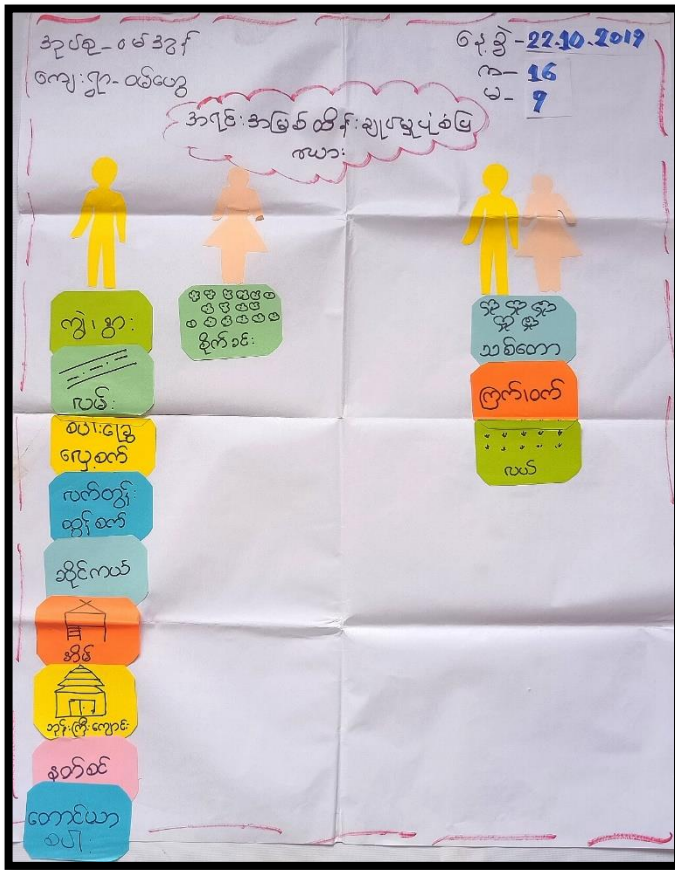 အုပ်စု - ဝမ်အွန်
ကျေးရွာ - ဝမ်ဟွေ
နေ့စွဲ - 22.10.2019
က - 16
မ - 9
အရင်းအမြစ်ထိန်းချုပ်မှုပုံစံပြ
ဇယား
ကျွဲ၊နွား
လမ်း
စပါးခြွေ
လှေ့စက်
လက်တွန်း
ထွန်စက်
ဆိုင်ကယ်
အိမ်
ဘုန်းကြီးကျောင်း
နတ်စင်
တောင်ယာ
စပါး
စိုက်ခင်း
သစ်တော
ကြက်၊ဝက်
လယ်